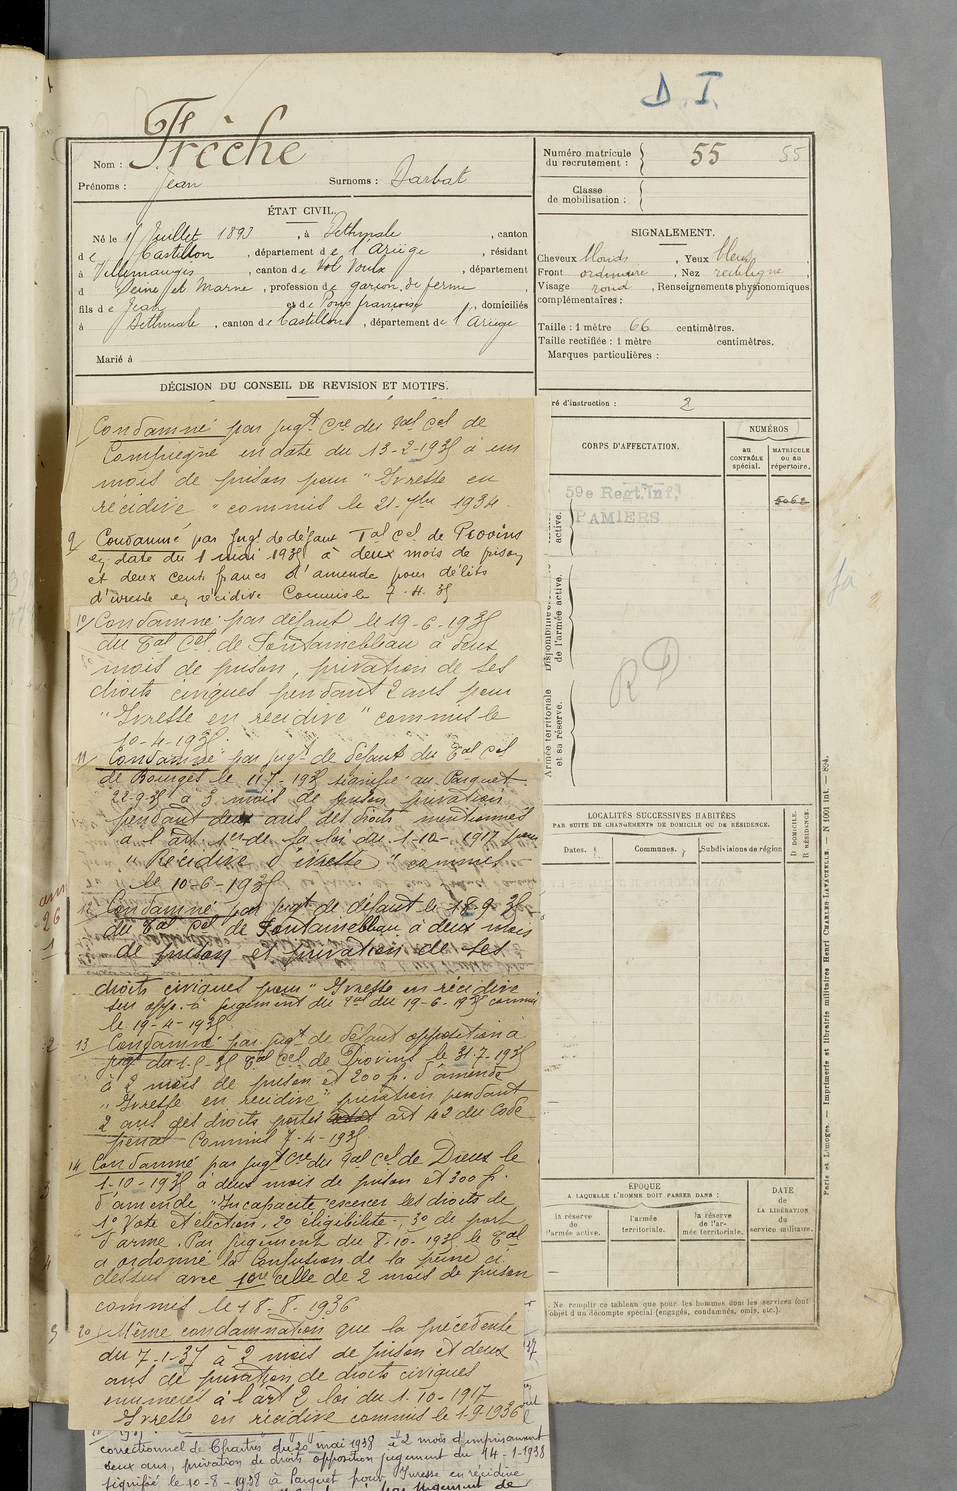 D. I.
Frèche
Nom :
Prénoms : Jean Surnoms : Darbat
ÉTAT CIVIL.
Né le 15 Juillet 1893, à Bethmale, canton
de Castillon, département de l'Ariège, résidant
à Villemauges, canton de, département
d Seine et Marne, profession de garçon de ferme
fils de Jean et de Pons françoise, domiciliés
à Bethmale, canton de Castillon, département de l'Ariège
Marié à
DÉCISION DU CONSEIL DE REVISION ET MOTIFS.
Numéro matricule du recrutement : 55 55
Classe de mobilisation :
SIGNALEMENT.
Cheveux blonds, Yeux bleus
Front ordinaire, Nez rectiligne,
Visage rond, Renseignements physionomiques
complémentaires :
Taille : 1 mètre 66 centimètres.
Taille rectifiée : 1 mètre centimètres.
Marques particulières :
ré d'instruction : 2
CORPS D'AFFECTATION.
NUMÉROS
au CONTRÔLE spécial.
MATRICULE ou au répertoire.
59e Regt. Inf.
PAMIERS
5062
active.
de l'armée active.
Armée territoriale et sa réserve.
R D
LOCALITÉS SUCCESSIVES HABITÉES
PAR SUITE DE CHANGEMENTS DE DOMICILE OU DE RÉSIDENCE.
Dates. Communes. Subdivisions de région
D. DOMICILE.
R. RÉSIDENCE.
ÉPOQUE
A LAQUELLE L'HOMME DOIT PASSER DANS :
la réserve de l'armée active.
l'armée territoriale.
la réserve de l'armée territoriale.
DATE de LA LIBÉRATION du service militaire.
. Ne remplir ce tableau que pour les hommes dont les services font
l'objet d'un décompte spécial (engagés, condamnés, omis, etc.).
Paris et Limoges. — Imprimerie et librairie militaires Henri CHARLES-LAVAUZELLE. — N 1001 int. - 894.
Condamné par jugt. Cre du Tal Cel de
Compiègne en date du 13-2-1935 à un
mois de prison pour "Ivresse en
récidive" commis le 21-7bre 1934
9 Condamné par jugt. de défaut Tal Cel. de Provins
en date du 1 mai 1935 à deux mois de prison
et deux cents francs d'amende pour délits
d'ivresse en récidive Commis le 7.4.35
10/ Condamné par défaut le 19-6-1935
du Tal Cel de Fontainebleau à deux
mois de prison, privation de ses
droits civiques pendant 2 ans pour
"Ivresse en récidive" commis le
10-4-1935.
11/ Condamné par jugt de défaut du Tal Cel
de Bourges le 11-7-1935 signifié au Parquet
28-9-35 à 3 mois de prison privation
pendant deux ans des droits mentionnés
à l'art 1er de la loi du 1-10-1917 pour
"Récidive d'ivresse" commis
le 10-6-1935
12 Condamné par jugt de défaut le 18-9-35
du Tal Cel de Fontainebleau à deux mois
de prison et privation de ses
droits civiques pour "Ivresse en récidive
sur opp. à jugement du Tal du 19-6-1935 commis
le 19-4-1935
13 Condamné par jugt de défaut opposition à
jugt du 1-5-35 Tal Cel. de Provins le 31-7-1935
à 2 mois de prison et 200 f. d'amende
"Ivresse en récidive" privation pendant
2 ans des droits portés art 42 du Code
penal Commis 7-4-1935
14 Condamné par jugt Cre du Tal Cel de Dreux le
1-10-1935 à deux mois de prison et 300 f.
d'amende "Incapacité exercer les droits de
1° Vote et élection, 2° éligibilité, 3° de port
d'arme. Par jugement du 8-10-1935 le Tal
a ordonné la Confusion de la peine ci-
dessus avec 1ere celle de 2 mois de prison
commis le 18.8.1936
20/ Même condamnation que la précédente
du 7-1-37 à 2 mois de prison et deux
ans de privation de droits civiques
enumerés à l'art 2 loi du 1-10-1917
Ivresse en récidive commis le 1-9-1936
correctionnel de Chartres du 20 mai 1938 à 2 mois d'emprisonnement
deux ans, privation de droits opposition jugement du 14-1-1938
signifié le 10-8-1938 à Parquet pour Ivresse en récidive